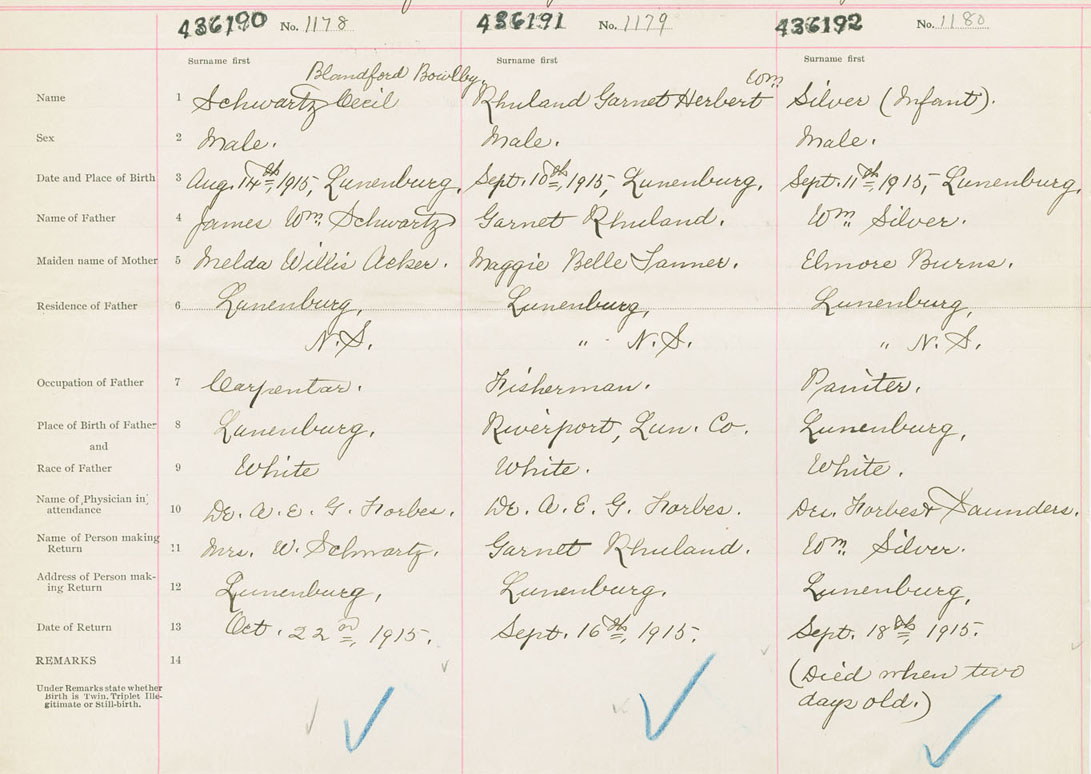 436190 No. 1178 436191 No. 1179 436192 No. 1180
Surname first Surname first Surname first
Blandford Bowlby Wm
Name 1 Schwartz Cecil Rhuland Garnet Herbert Silver (Infant).
Sex 2 Male. Male. Male.
Date and Place of Birth 3 Aug. 14th, 1915, Lunenburg, Sept. 10th, 1915, Lunenburg, Sept. 11th, 1915, Lunenburg,
Name of Father 4 James Wm. Schwartz Garnet Rhuland. Wm. Silver.
Maiden name of Mother 5 Melda Willis Acker. Maggie Belle Tanner. Elmore Burns.
Residence of Father 6 Lunenburg, Lunenburg, Lunenburg,
N.S. " N.S. " N.S.
Occupation of Father 7 Carpentar. Fisherman. Painter.
Place of Birth of Father 8 Lunenburg, Riverport, Lun. Co. Lunenburg,
and
Race of Father 9 White White. White.
Name of Physician in
attendance 10 Dr. A. E. G. Forbes. Dr. A. E. G. Forbes. Drs. Forbes & Saunders.
Name of Person making
Return 11 Mrs. W. Schwartz. Garnet Rhuland. Wm. Silver.
Address of Person mak-
ing Return 12 Lunenburg, Lunenburg. Lunenburg,
Date of Return 13 Oct. 22nd, 1915. Sept. 16th, 1915. Sept. 18th, 1915.
REMARKS 14 (Died when two
Under Remarks state whether
Birth is Twin, Triplet Ille-
gitimate or Still-birth.
days old.)